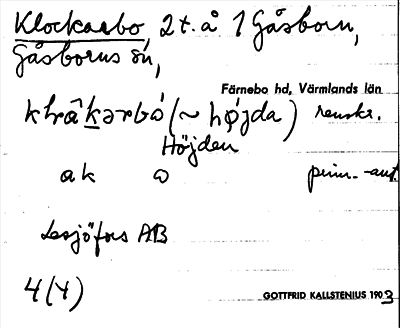 Klockarbo, 2 t. å 1 Gåsborn,
Gåsborns sn,
Färnebo hd, Värmlands län
(~ højda) renskr.
Höjden
ak o prim.-ant.
Lesjöfors AB
4(4)
GOTTFRID KALLSTENIUS 1903